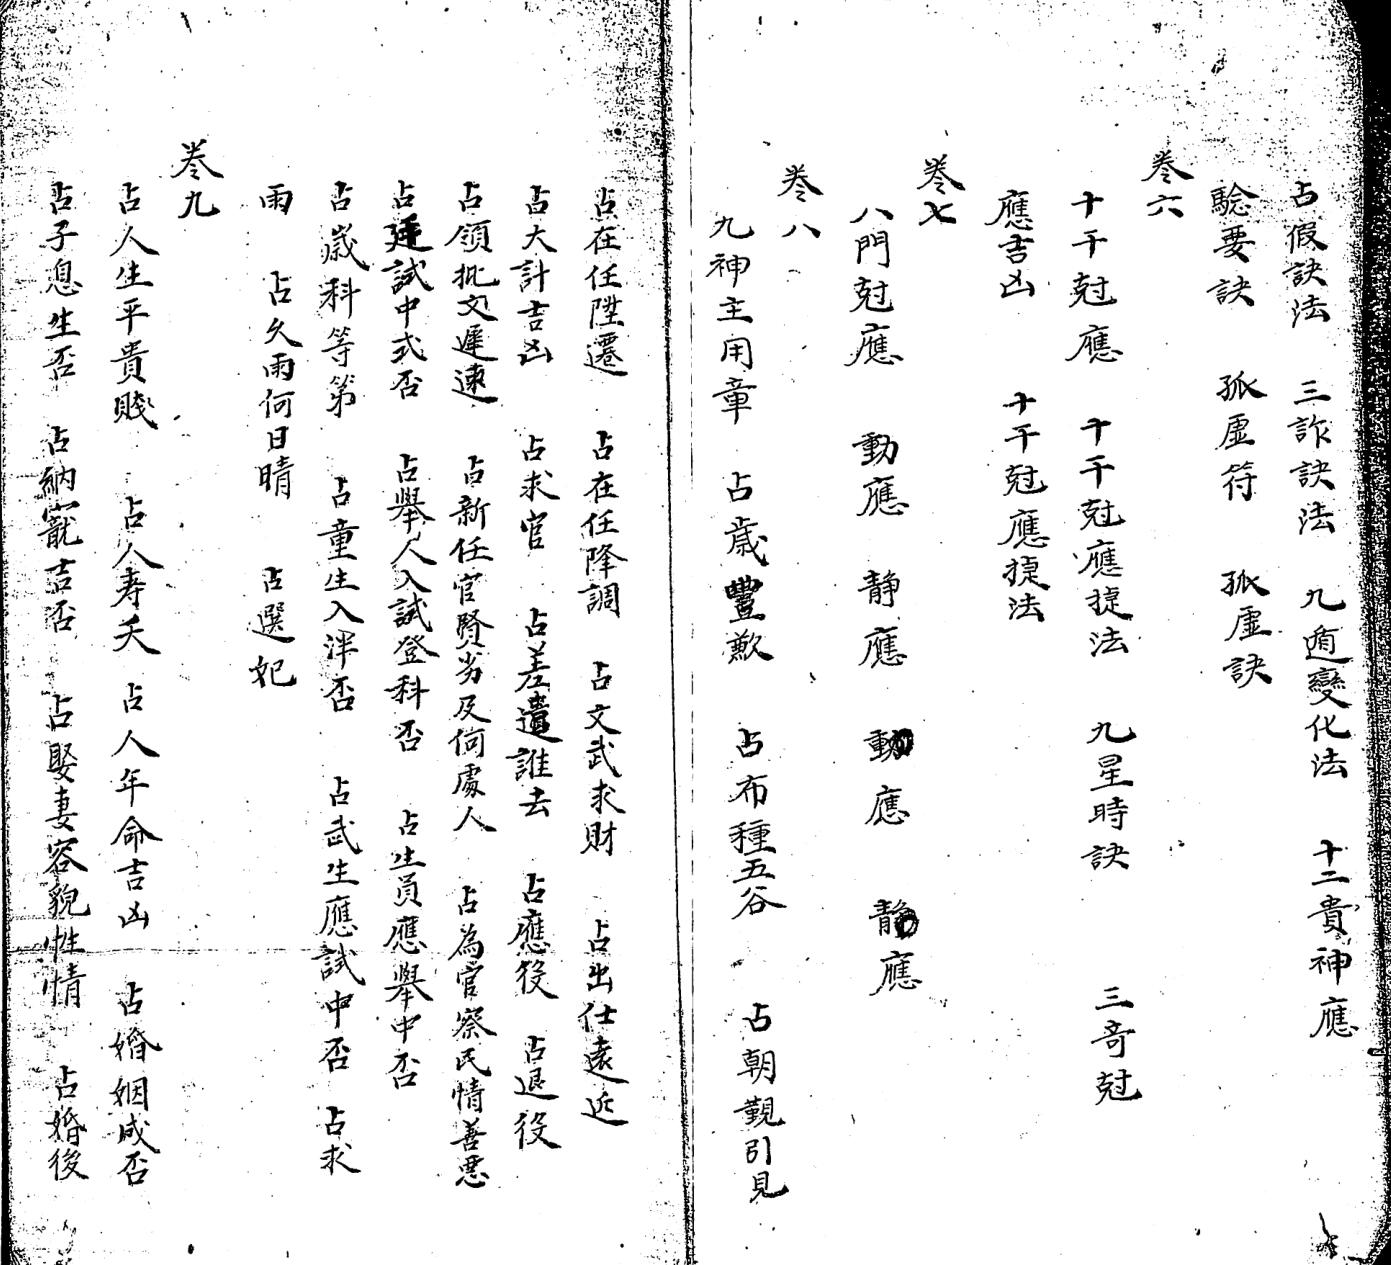 占假訣法　三詐訣法　九遁變化法　十二貴神應
驗要訣　孤虛符　孤虛訣
卷六
十干尅應　十干尅應捷法　九星時訣　三奇尅
應吉凶　十干尅應捷法
卷七
八門尅應　動應　静應　動應　静應
卷八
九神主用章　占歲豐歉　占布種五谷　占朝覲引見
占在任陞遷　占在任降調　占文武求財　占出仕遠近
占大計吉凶　占求官　占差遣誰去　占應役　占退役
占領批文遲速　占新任官賢劣及何處人　占為官察民情善惡
占廷試中式否　占舉人入試登科否　占生員應舉中否
占歲科等第　占童生入泮否　占武生應試中否　占求
雨　占久雨何日晴　占選妃
卷九
占人生平貴賤　占人寿夭　占人年命吉凶　占婚姻成否
占子息生否　占納寵吉否　占娶妻容貌性情　占婚後